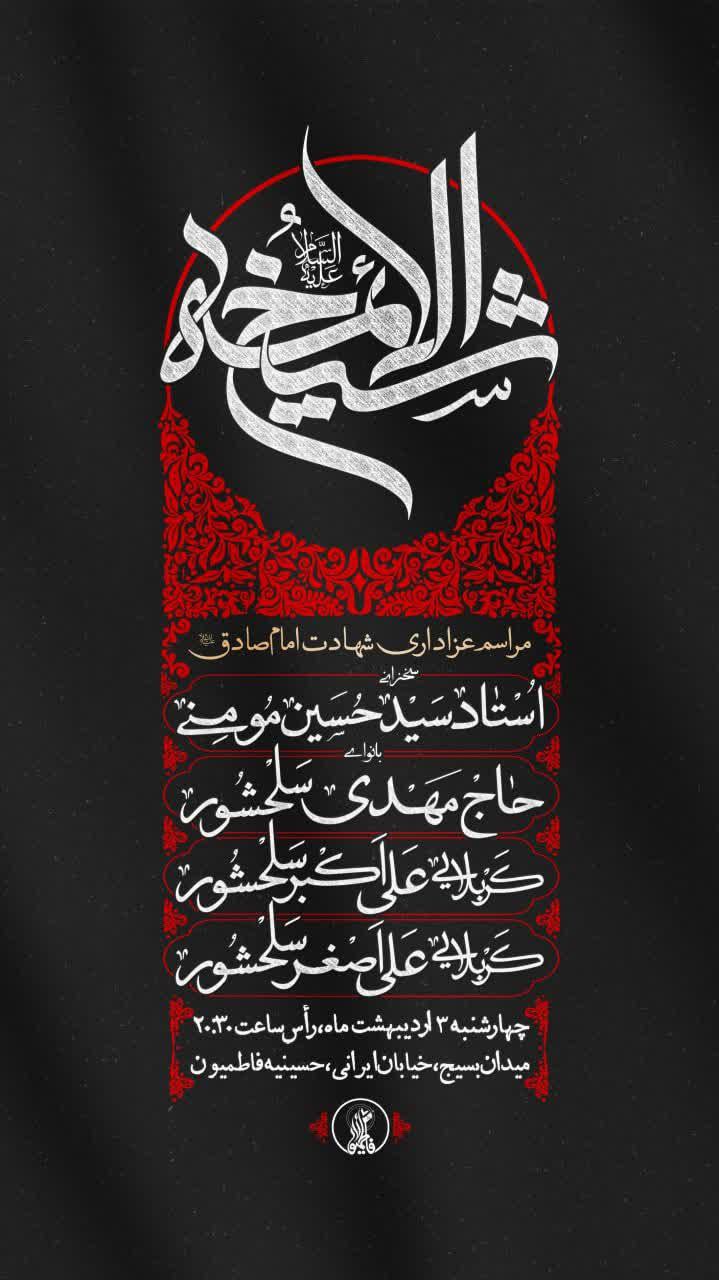 شیخ الائمه
علیه السلام
مراسم عزاداری شهادت امام صادق علیه السلام
سخنرانی
اُستاد سَید حُسَین مُومِنی
بانوای
حاج مَهَدی سَلَحشُور
کَربَلایی عَلی اَکبَر سَلَحشُور
کَربَلایی عَلی اَصغَر سَلَحشُور
چهارشنبه ۳ اردیبهشت ماه، رأس ساعت ۲۰:۳۰
میدان بسیج، خیابان ایرانی، حسینیه فاطمیون
فاطمیون